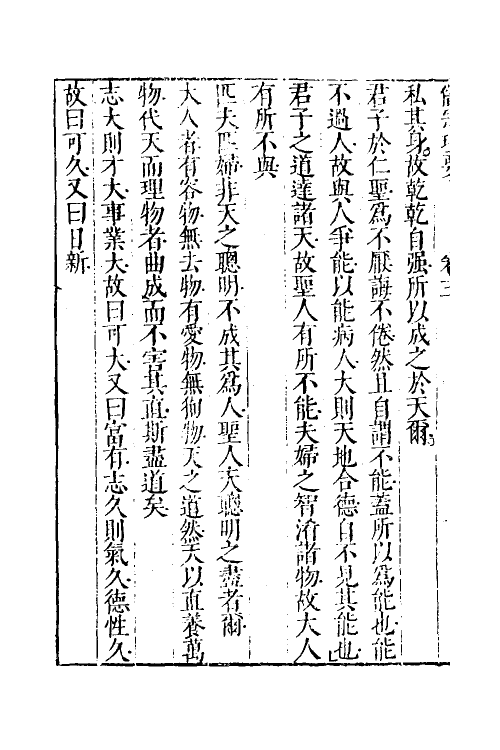 卷三
私其身故乾乾自强所以成之於天爾
君子於仁聖爲不厭誨不倦然且自謂不能蓋所以爲能也能
不過人故與人爭能以能病人大則天地合德自不見其能也
君子之道達諸天故聖人有所不能夫婦之智淆諸物故大人
有所不與
匹夫匹婦非天之聰明不成其爲人聖人天聰明之盡者爾
大人者有容物無去物有愛物無徇物天之道然天以直養萬
物代天而理物者曲成而不害其直斯盡道矣
志大則才大事業大故曰可大又曰富有志久則氣久德性久
故曰可久又曰日新